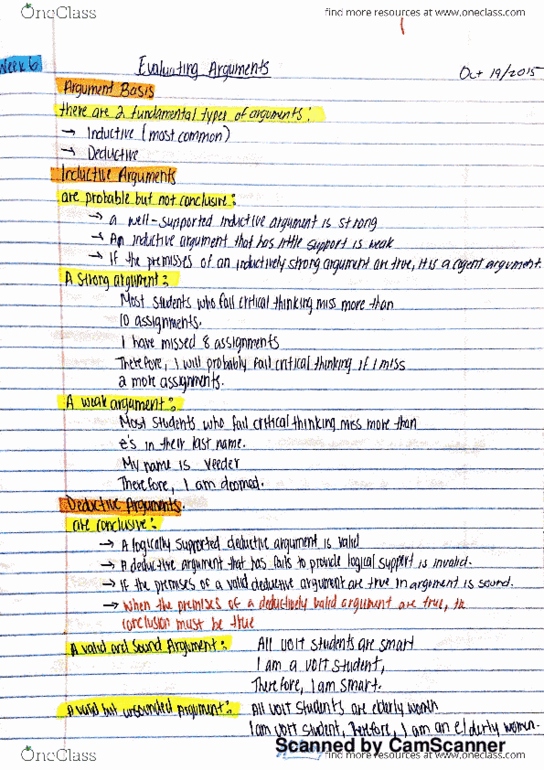 OneClass
find more resources at www.oneclass.com
1
Week 6
Evaluating Arguments
Oct 19/2015
Argument Basis
there are 2 fundamental types of arguments:
→ Inductive (most common)
→ Deductive
Inductive Arguments
are probable but not conclusive:
→ a well-supported inductive argument is strong
→ An inductive argument that has little support is weak
→ If the premisses of an inductively strong argument are true, it is a cogent argument.
A strong argument:
Most students who fail critical thinking miss more than
10 assignments.
I have missed 8 assignments
Therefore, I will probably fail critical thinking if I miss
2 more assignments.
A weak argument:
Most students who fail critical thinking miss more than
e's in their last name.
My name is Veeder
Therefore, I am doomed.
Deductive Arguments.
are conclusive:
→ A logically supported deductive argument is valid
→ A deductive argument that has fails to provide logical support is invalid.
→ If the premises of a valid deductive argument are true argument is sound.
→ When the premises of a deductively valid argument are true, the
conclusion must be true
A valid and sound Argument:
All UOIT students are smart
I am a UOIT student,
Therefore, I am smart.
A valid but unsounded Argument:
All UOIT students are elderly women
I am UOIT student, therefore, I am an elderly women.
Scanned by CamScanner
OneClass
find more resources at www.oneclass.com